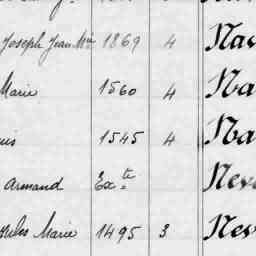 Joseph Jean Mie 1869 4 Nav
Marie 1560 4 Na
uis 1545 4 Na
Armand Exte Neve
Jules Marie 1495 3 Nev